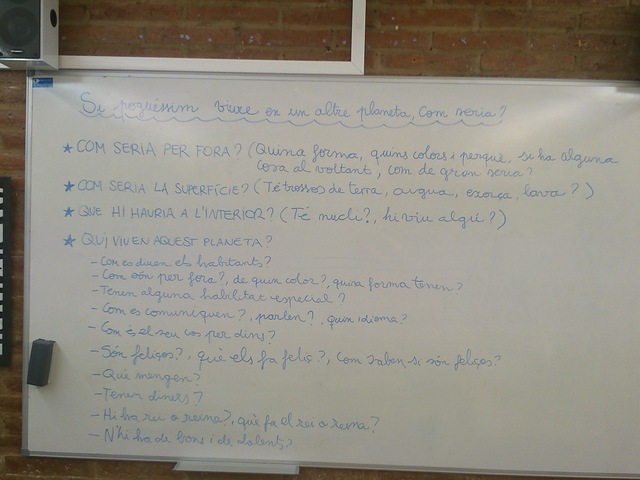 Si poguéssim viure en un altre planeta, com seria?
★ COM SERIA PER FORA? (Quina forma, quins colors i perquè, si ha alguna
cosa al voltant, com de gran seria?
★ COM SERIA LA SUPERFÍCIE? (Té trossos de terra, aigua, escorça, lava?)
★ QUE HI HAURIA A L'INTERIOR? (Té nucli?, hi viu algú?)
★ QUI VIU EN AQUEST PLANETA?
- Com es diuen els habitants?
- Com són per fora?, de quin color?, quina forma tenen?
- Tenen alguna habilitat especial?
- Com es comuniquen?, parlen?, quin idioma?
- Com és el seu cos per dins?
- Són feliços?, què els fa feliç?, com saben si són feliços?
- Què mengen?
- Tenen diners?
- Hi ha rei o reina?, què fa el rei o reina?
- N'hi ha de bons i de dolents?